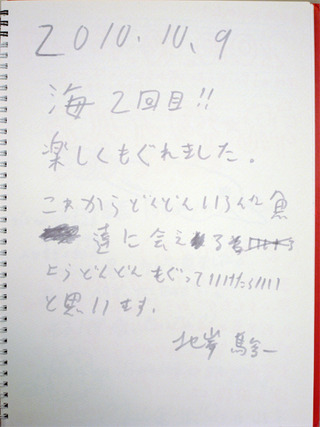 2010.10.9
海2回目!!
楽しくもぐれました。
これからどんどんいろんな魚
達に会える
ようどんどんもぐっていけたらいい
と思います。
北岸